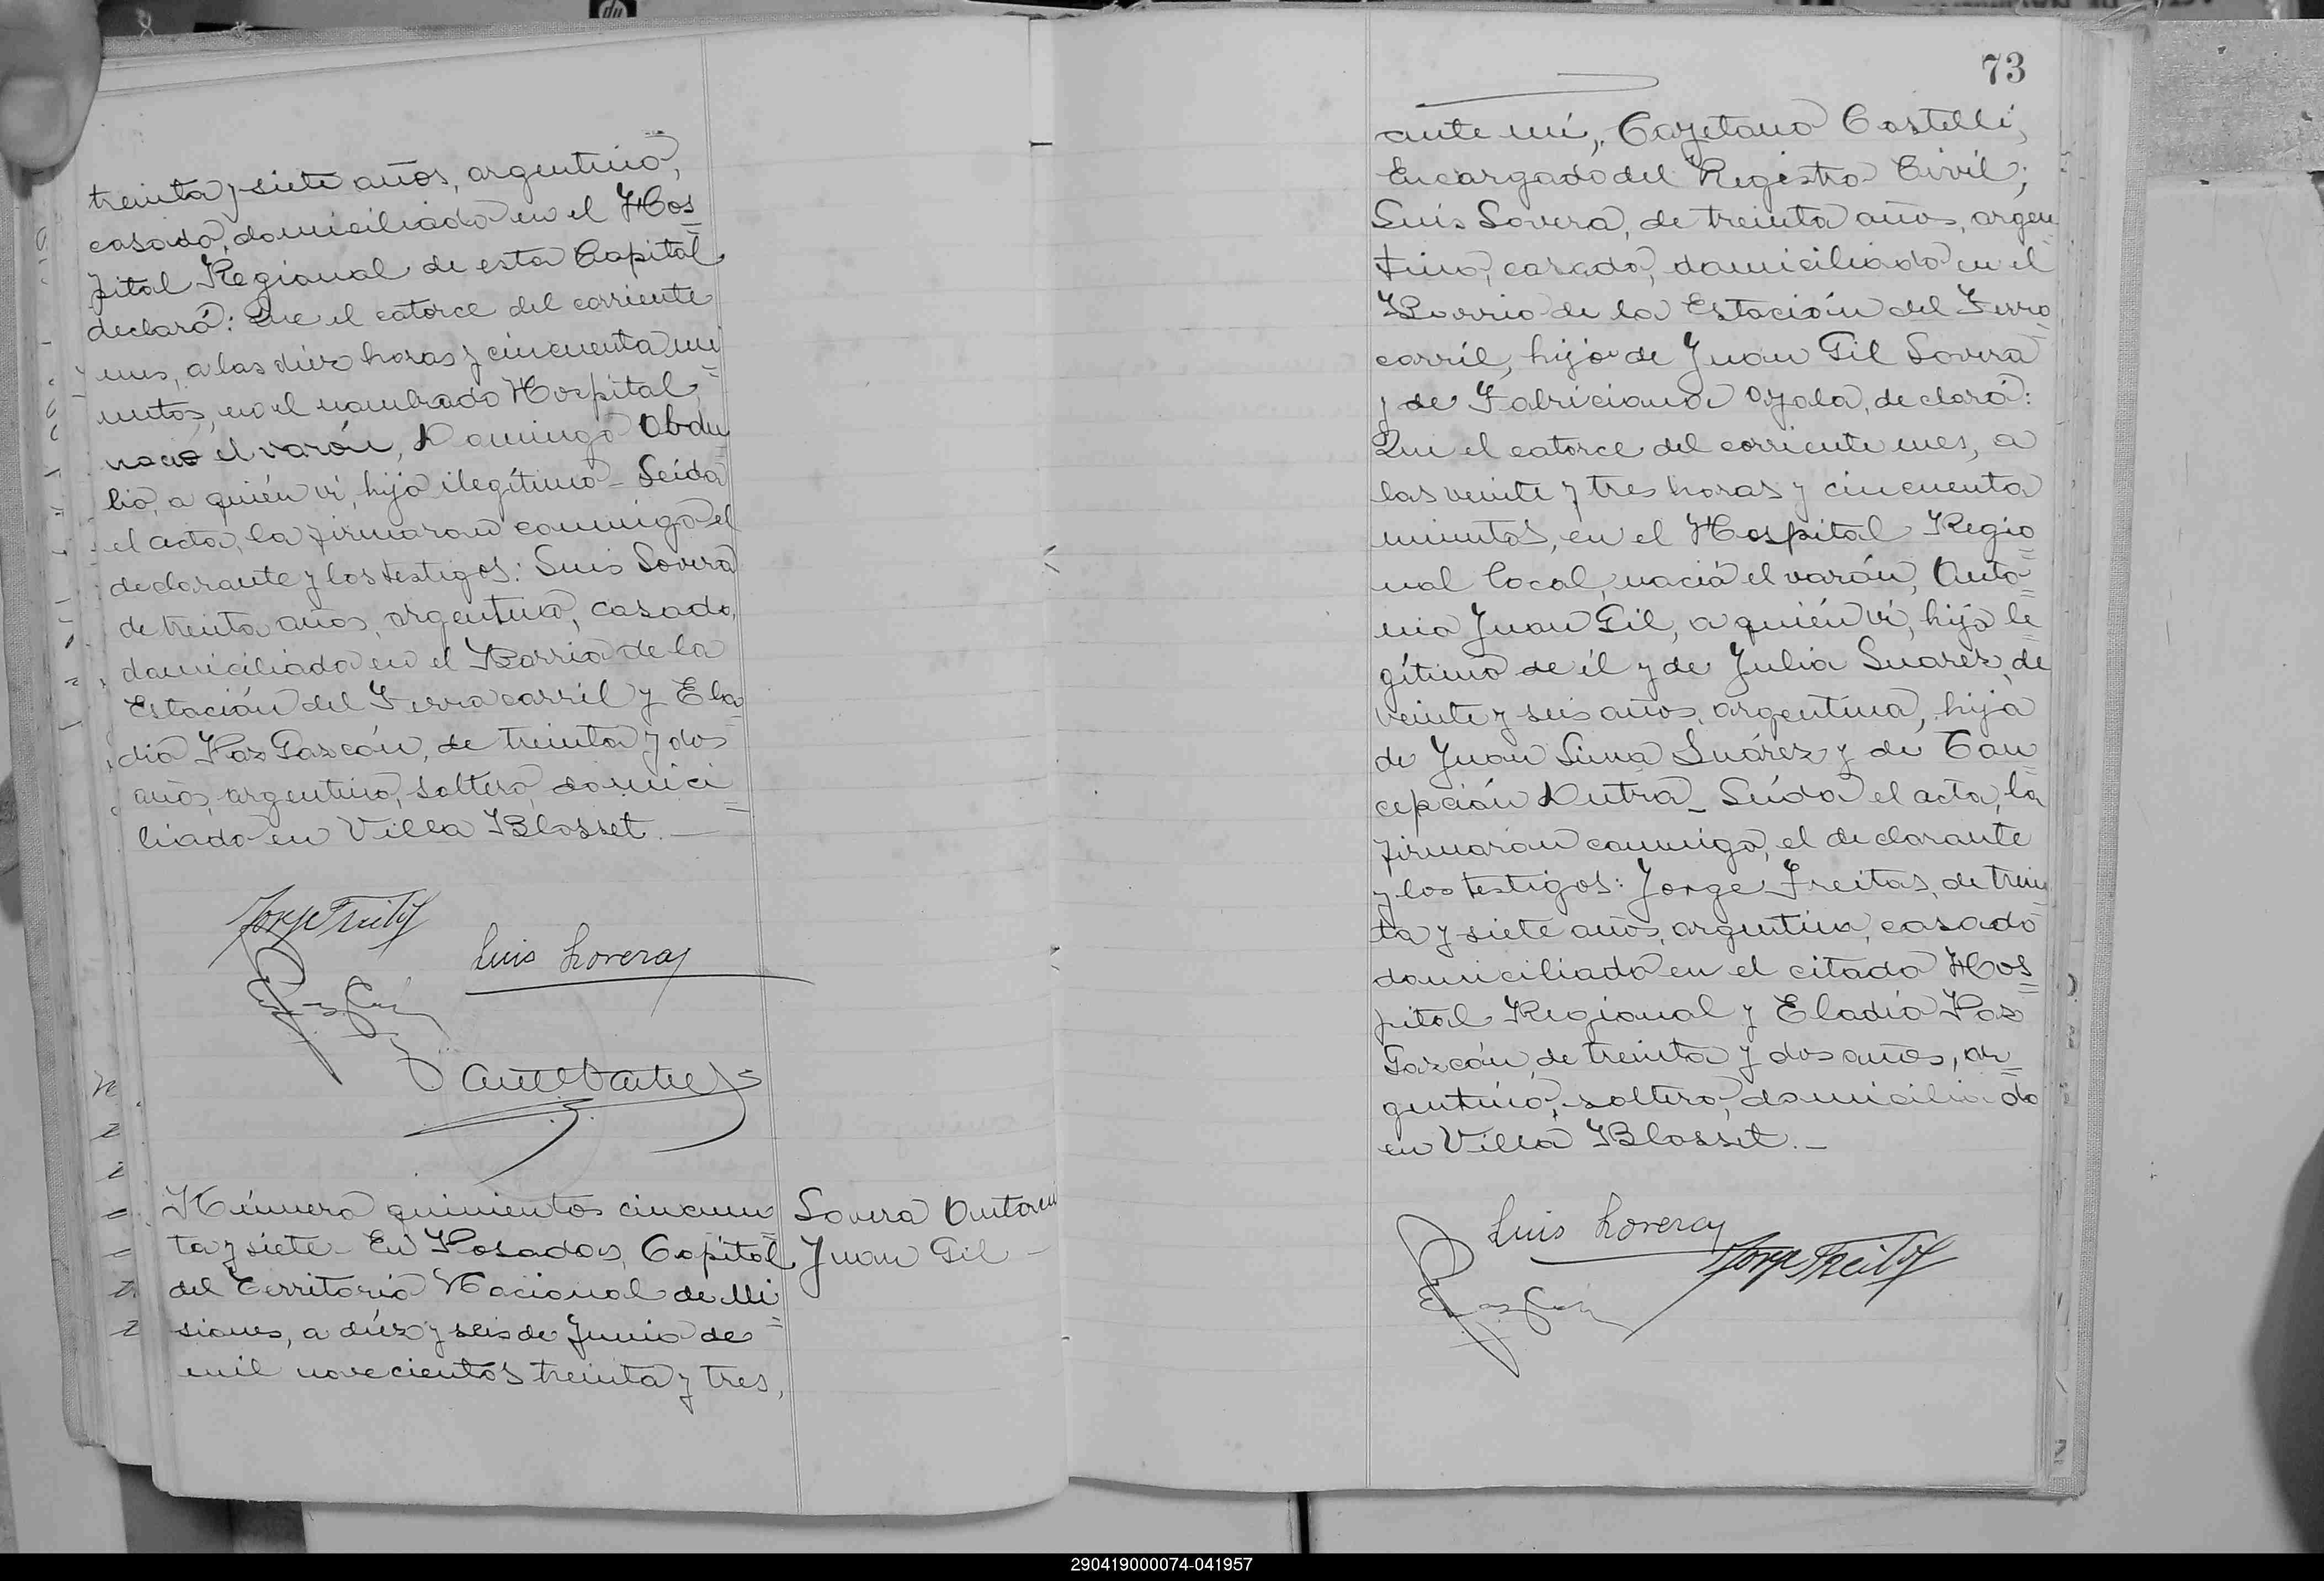 treinta y siete años, argentino,
casado, domiciliado en el Hos=
pital Regional de esta Capital
declaró: Que el catorce del corriente
mes, a las diez horas y cincuenta mi=
nutos, en el nombrado Hospital,
nació el varón, Domingo Obdu
lio, a quién vi, hijo ilegítimo - Leída
el acta, la firmaron conmigo el
declarante y los testigos: Luis Lovera
de treinta años, argentino, casado,
domiciliado en el Barrio de la
Estación del Ferrocarril y Ela=
dio Paz Gazcón, de treinta y dos
años, argentino, soltero, domici=
liado en Villa Blosset. —
Jorge Freitas
Luis Lovera
Número quinientos cincuen=
ta y siete - En Posadas, Capital
del Territorio Nacional de Mi=
siones, a diez y seis de Junio de
mil novecientos treinta y tres,
Lovera Antonio
Juan Gil -
73
ante mí, Cayetano Castelli,
Encargado del Registro Civil;
Luis Lovera, de treinta años, argen=
tino, casado, domiciliado en el
Barrio de la Estación del Ferro=
carril, hijo de Juan Gil Lovera
y de Fabriciana Ayala, declaró:
Que el catorce del corriente mes, a
las veinte y tres horas y cincuenta
minutos, en el Hospital Regio=
nal local, nació el varón, Anto=
nio Juan Gil, a quién vi, hijo le=
gítimo de él y de Julia Suarez, de
veinte y seis años, argentina, hija
de Juan Suárez y de Con=
cepción Dutra - Leída el acta, la
firmaron conmigo, el declarante
y los testigos: Jorge Freitas, de trein=
ta y siete años, argentino, casado
domiciliado en el citado Hos=
pital Regional y Eladio Paz
Gazcón, de treinta y dos años, ar=
gentino, soltero, domiciliado
en Villa Blosset. -
Luis Lovera
Jorge Freitas
290419000074-041957